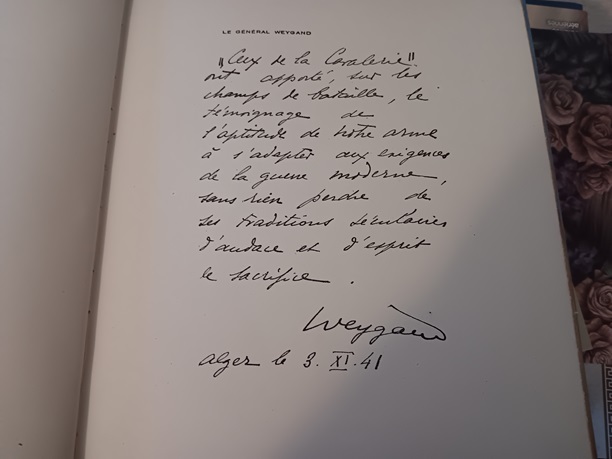 LE GÉNÉRAL WEYGAND
"Ceux de la Cavalerie"
ont apporté, sur les
champs de bataille, le
témoignage de
l'aptitude de notre arme
à s'adapter aux exigences
de la guerre moderne,
sans rien perdre de
ses traditions séculaires
d'audace et d'esprit
de sacrifice.
Weygand
Alger le 3. XI. 41